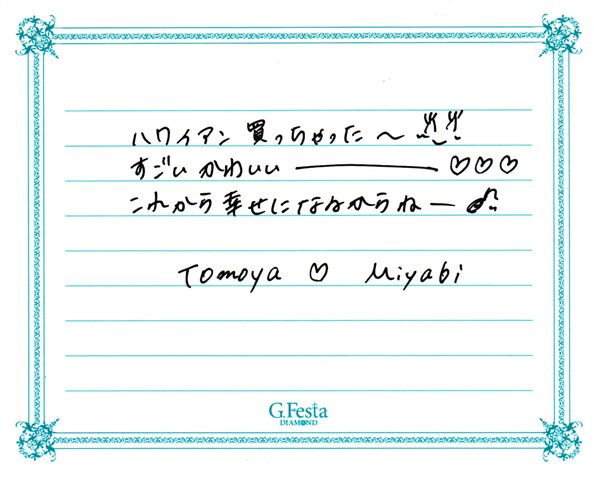 ハワイアン 買っちゃった〜
すごい かわいい ――――― ♡♡♡
これから 幸せになるからねー ♪
Tomoya ♡ Miyabi
G.Festa
DIAMOND